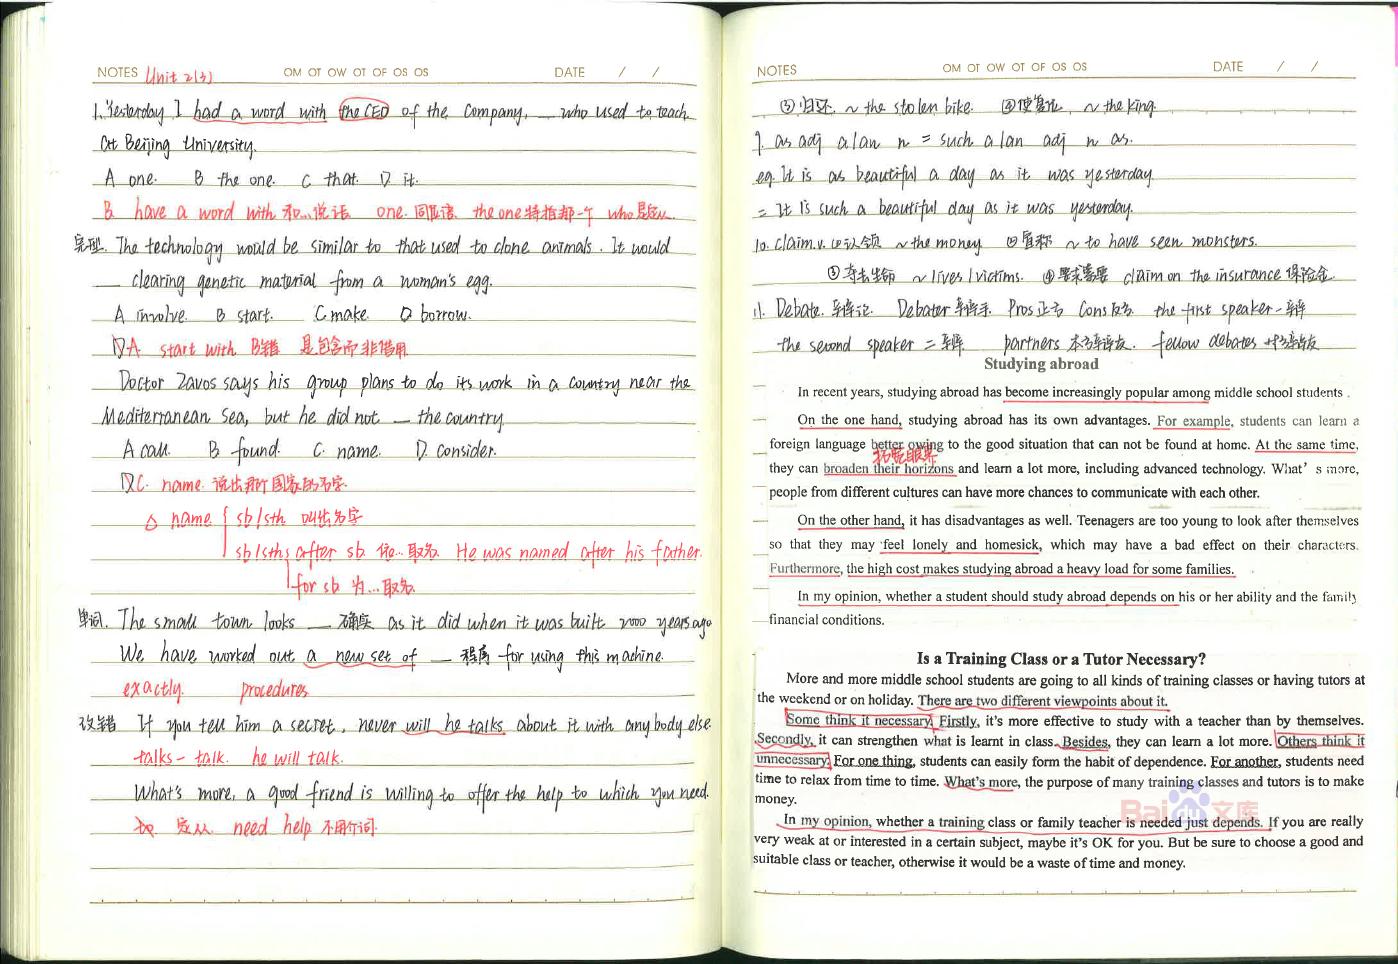 NOTES Unit 2(3) OM OT OW OT OF OS OS DATE / /
1. Yesterday I had a word with the CEO of the company, __ who used to teach
at Beijing University.
A one. B the one. C that. D it.
B. have a word with 和…说话 one. 同位语 the one 特指那一个 who 定从
完型. The technology would be similar to that used to clone animals. It would
__ clearing genetic material from a woman's egg.
A involve. B start. C make. D borrow.
A start with B错 是包含而非借用
Doctor Zavos says his group plans to do its work in a country near the
Mediterranean Sea, but he did not __ the country.
A call. B found. C. name. D. consider.
C. name. 说出那个国家的名字.
△ name { sb/sth 叫出名字
sb/sth after sb 依…取名 He was named after his father.
for sb 为…取名.
单词. The small town looks __ 确实 as it did when it was built 2000 years ago
We have worked out a new set of __ 程序 for using this machine.
exactly. procedures
改错 If you tell him a secret, never will he talks about it with anybody else.
talks - talk. he will talk.
What's more, a good friend is willing to offer the help to which you need.
to 定从 need help 不用介词.
NOTES OM OT OW OT OF OS OS DATE / /
③归还. ~ the stolen bike. ④使复位 ~ the king.
9. as adj a/an n = such a/an adj n as.
eg. It is as beautiful a day as it was yesterday.
= It is such a beautiful day as it was yesterday.
10. claim.v. ①认领 ~ the money ②宣称 ~ to have seen monsters.
③夺去生命 ~ lives / victims. ④要求索要 claim on the insurance 保险金
11. Debate. 辩论. Debater 辩手. Pros 正方 Cons 反方 the first speaker 一辩
the second speaker = 二辩 partners 本方辩友. fellow debates 对方辩友
Studying abroad
In recent years, studying abroad has become increasingly popular among middle school students .
On the one hand, studying abroad has its own advantages. For example, students can learn a
foreign language better owing to the good situation that can not be found at home. At the same time,
拓宽眼界
they can broaden their horizons and learn a lot more, including advanced technology. What' s more,
people from different cultures can have more chances to communicate with each other.
On the other hand, it has disadvantages as well. Teenagers are too young to look after themselves
so that they may feel lonely and homesick, which may have a bad effect on their characters.
Furthermore, the high cost makes studying abroad a heavy load for some families.
In my opinion, whether a student should study abroad depends on his or her ability and the family
financial conditions.
Is a Training Class or a Tutor Necessary?
More and more middle school students are going to all kinds of training classes or having tutors at
the weekend or on holiday. There are two different viewpoints about it.
Some think it necessary. Firstly, it's more effective to study with a teacher than by themselves.
Secondly, it can strengthen what is learnt in class. Besides, they can learn a lot more. Others think it
unnecessary. For one thing, students can easily form the habit of dependence. For another, students need
time to relax from time to time. What's more, the purpose of many training classes and tutors is to make
money.
In my opinion, whether a training class or family teacher is needed just depends. If you are really
very weak at or interested in a certain subject, maybe it's OK for you. But be sure to choose a good and
suitable class or teacher, otherwise it would be a waste of time and money.
Bai du 文库